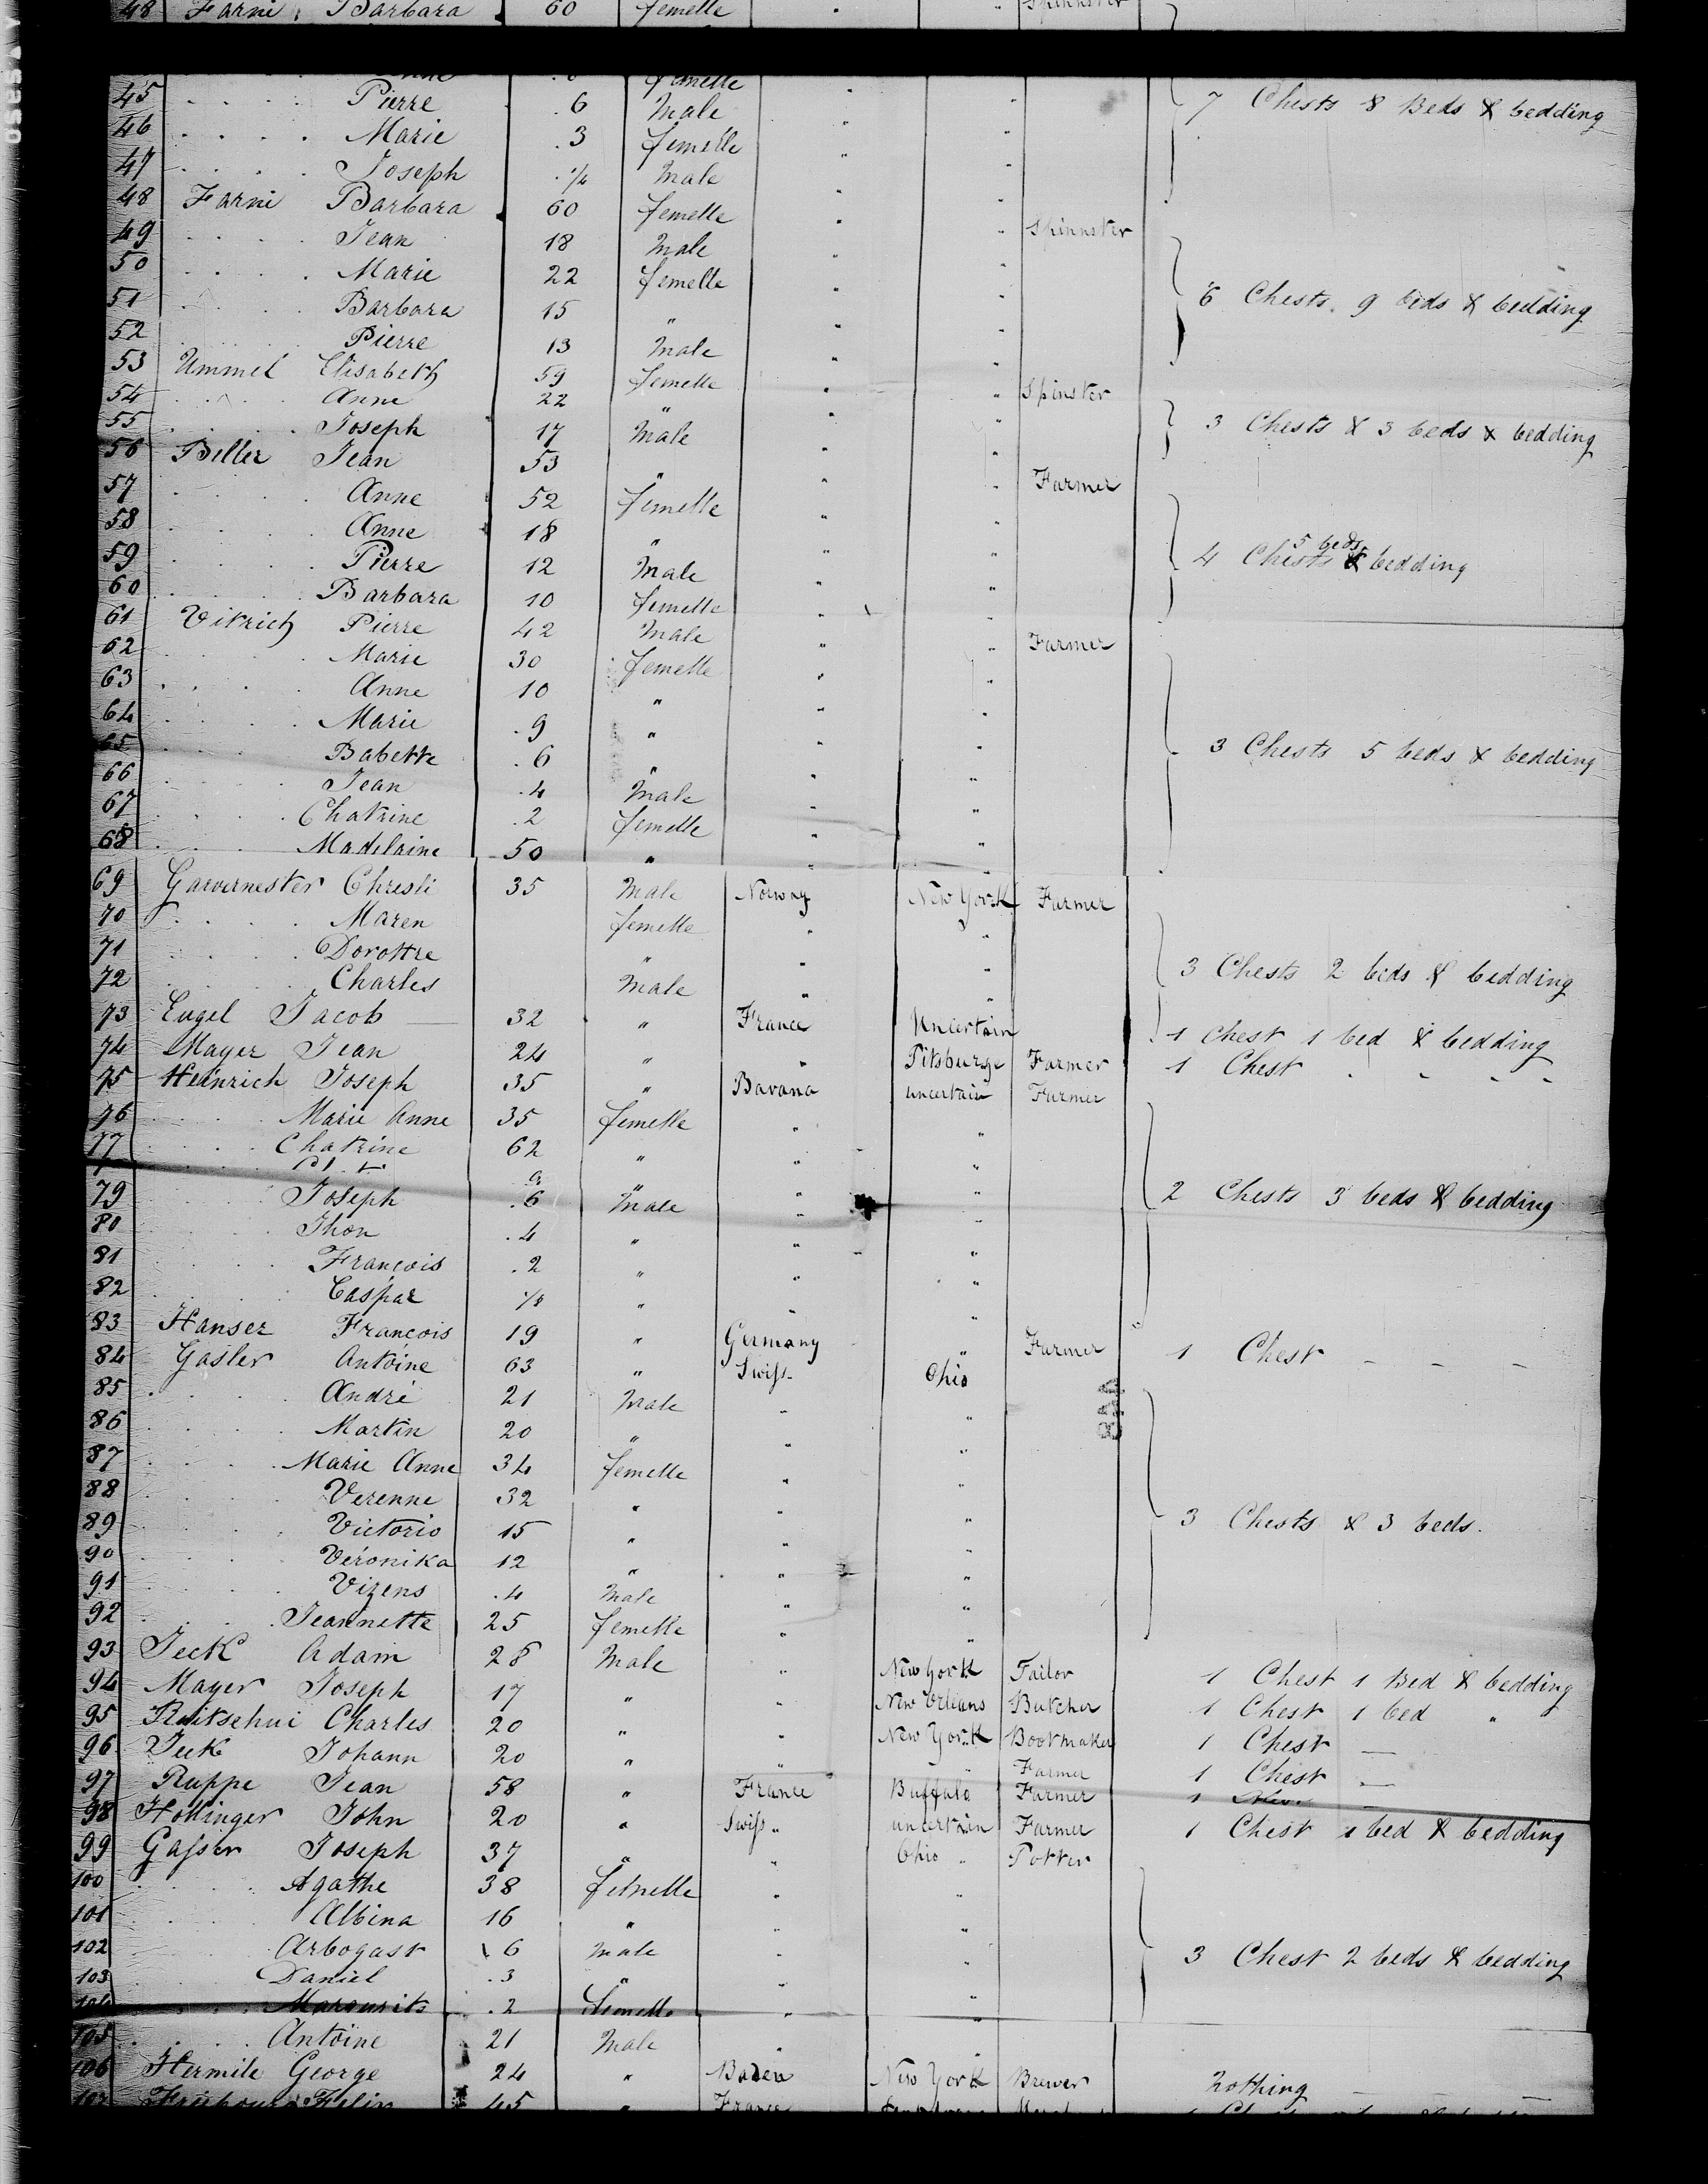 48 Farni Barbara 60 femelle " " Spinnster
femelle
45 . . . . Pierre . 6 Male " " 7 Chests 8 Beds & bedding
46 . . . . Marie . 3 femelle " "
47 . . . . Joseph Male " "
48 Farni Barbara 60 femelle " " Spinnster
49 . . . . Jean 18 Male " "
50 . . . . Marie 22 femelle " " 6 Chests 9 beds & bedding
51 . . . . Barbara 15 " " "
52 . . . . Pierre 13 Male " "
53 Ummel Elisabeth 59 femelle " " Spinster
54 . . . . Anne 22 " " " 3 Chests & 3 beds & bedding
55 . . . . Joseph 17 Male " "
56 Beller Jean 53 " " " Farmer
57 . . . . Anne 52 femelle " "
58 . . . . Anne 18 " " " 4 Chests 5 beds & bedding
59 . . . . Pierre 12 Male " "
60 . . . . Barbara 10 femelle " "
61 Vitrich Pierre 42 Male " " Farmer
62 . . . . Marie 30 femelle " "
63 . . . . Anne 10 " " "
64 . . . . Marie . 9 " " "
65 . . . . Babette . 6 " " " 3 Chests 5 beds & bedding
66 . . . . Jean . 4 Male " "
67 . . . . Chatrine . 2 femelle " "
68 . . . . Madelaine 50 " " "
69 Garvernester Christi 35 Male Norway New York Farmer
70 . . . . Maren femelle " "
71 . . . . Dorottre " " " 3 Chests 2 beds & bedding
72 . . . . Charles Male " "
73 Eugel Jacob 32 " France Uncertain 1 Chest 1 bed & bedding
74 Mayer Jean 24 " " Pitsburge Farmer 1 Chest - - - -
75 Heinrich Joseph 35 " Bavaria uncertain Farmer
76 . . . . Marie Anne 35 femelle " "
77 . . . . Chatrine 62 " " "
79 . . . . Joseph . 6 Male " " 2 Chests 3 beds & bedding
80 . . . . Jhon . 4 " " "
81 . . . . François . 2 " " "
82 . . . . Caspar " " "
83 Hanser François 19 " Germany " Farmer 1 Chest - - -
84 Gasler Antoine 63 " Swiss Ohio
85 . . . . André 21 Male " "
86 . . . . Martin 20 " " "
87 . . . . Marie Anne 34 femelle " "
88 . . . . Verenne 32 " " "
89 . . . . Victorio 15 " " " 3 Chests & 3 beds.
90 . . . . Véronika 12 " " "
91 . . . . Vizens . 4 Male " "
92 . . . . Jeannette 25 femelle " "
93 Jeck Adam 28 Male " New York Tailor 1 Chest 1 Bed & bedding
94 Mayer Joseph 17 " " New Orleans Butcher 1 Chest 1 bed "
95 Charles 20 " " New York Bootmaker 1 Chest —
96 Jeck Johann 20 " " " Farmer 1 Chest —
97 Ruppe Jean 58 " France Buffalo Farmer 1
98 Hottinger John 20 " Swiss " uncertain Farmer 1 Chest 1 bed & bedding
99 Gasser Joseph 37 " " Ohio Potter
100 . . . . Agathe 38 femelle " "
101 . . . . Albina 16 " " "
102 . . . . Arbogast 6 Male " " 3 Chest 2 beds & bedding
103 . . . . Daniel . 3 " " "
104 . . . . . 2 femelle " "
105 . . . . Antoine 21 Male " "
106 Hermile George 24 " Baden New York Brewer Nothing — —
107 45 " France